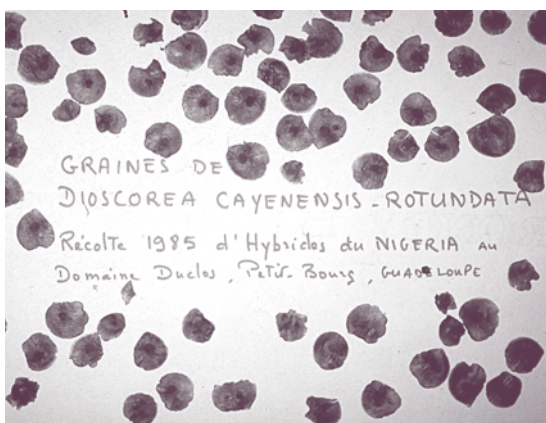 GRAINES DE
DIOSCOREA CAYENENSIS - ROTUNDATA
Récolte 1985 d'Hybrides du NIGERIA au
Domaine Duclos, Petit-Bourg, GUADELOUPE